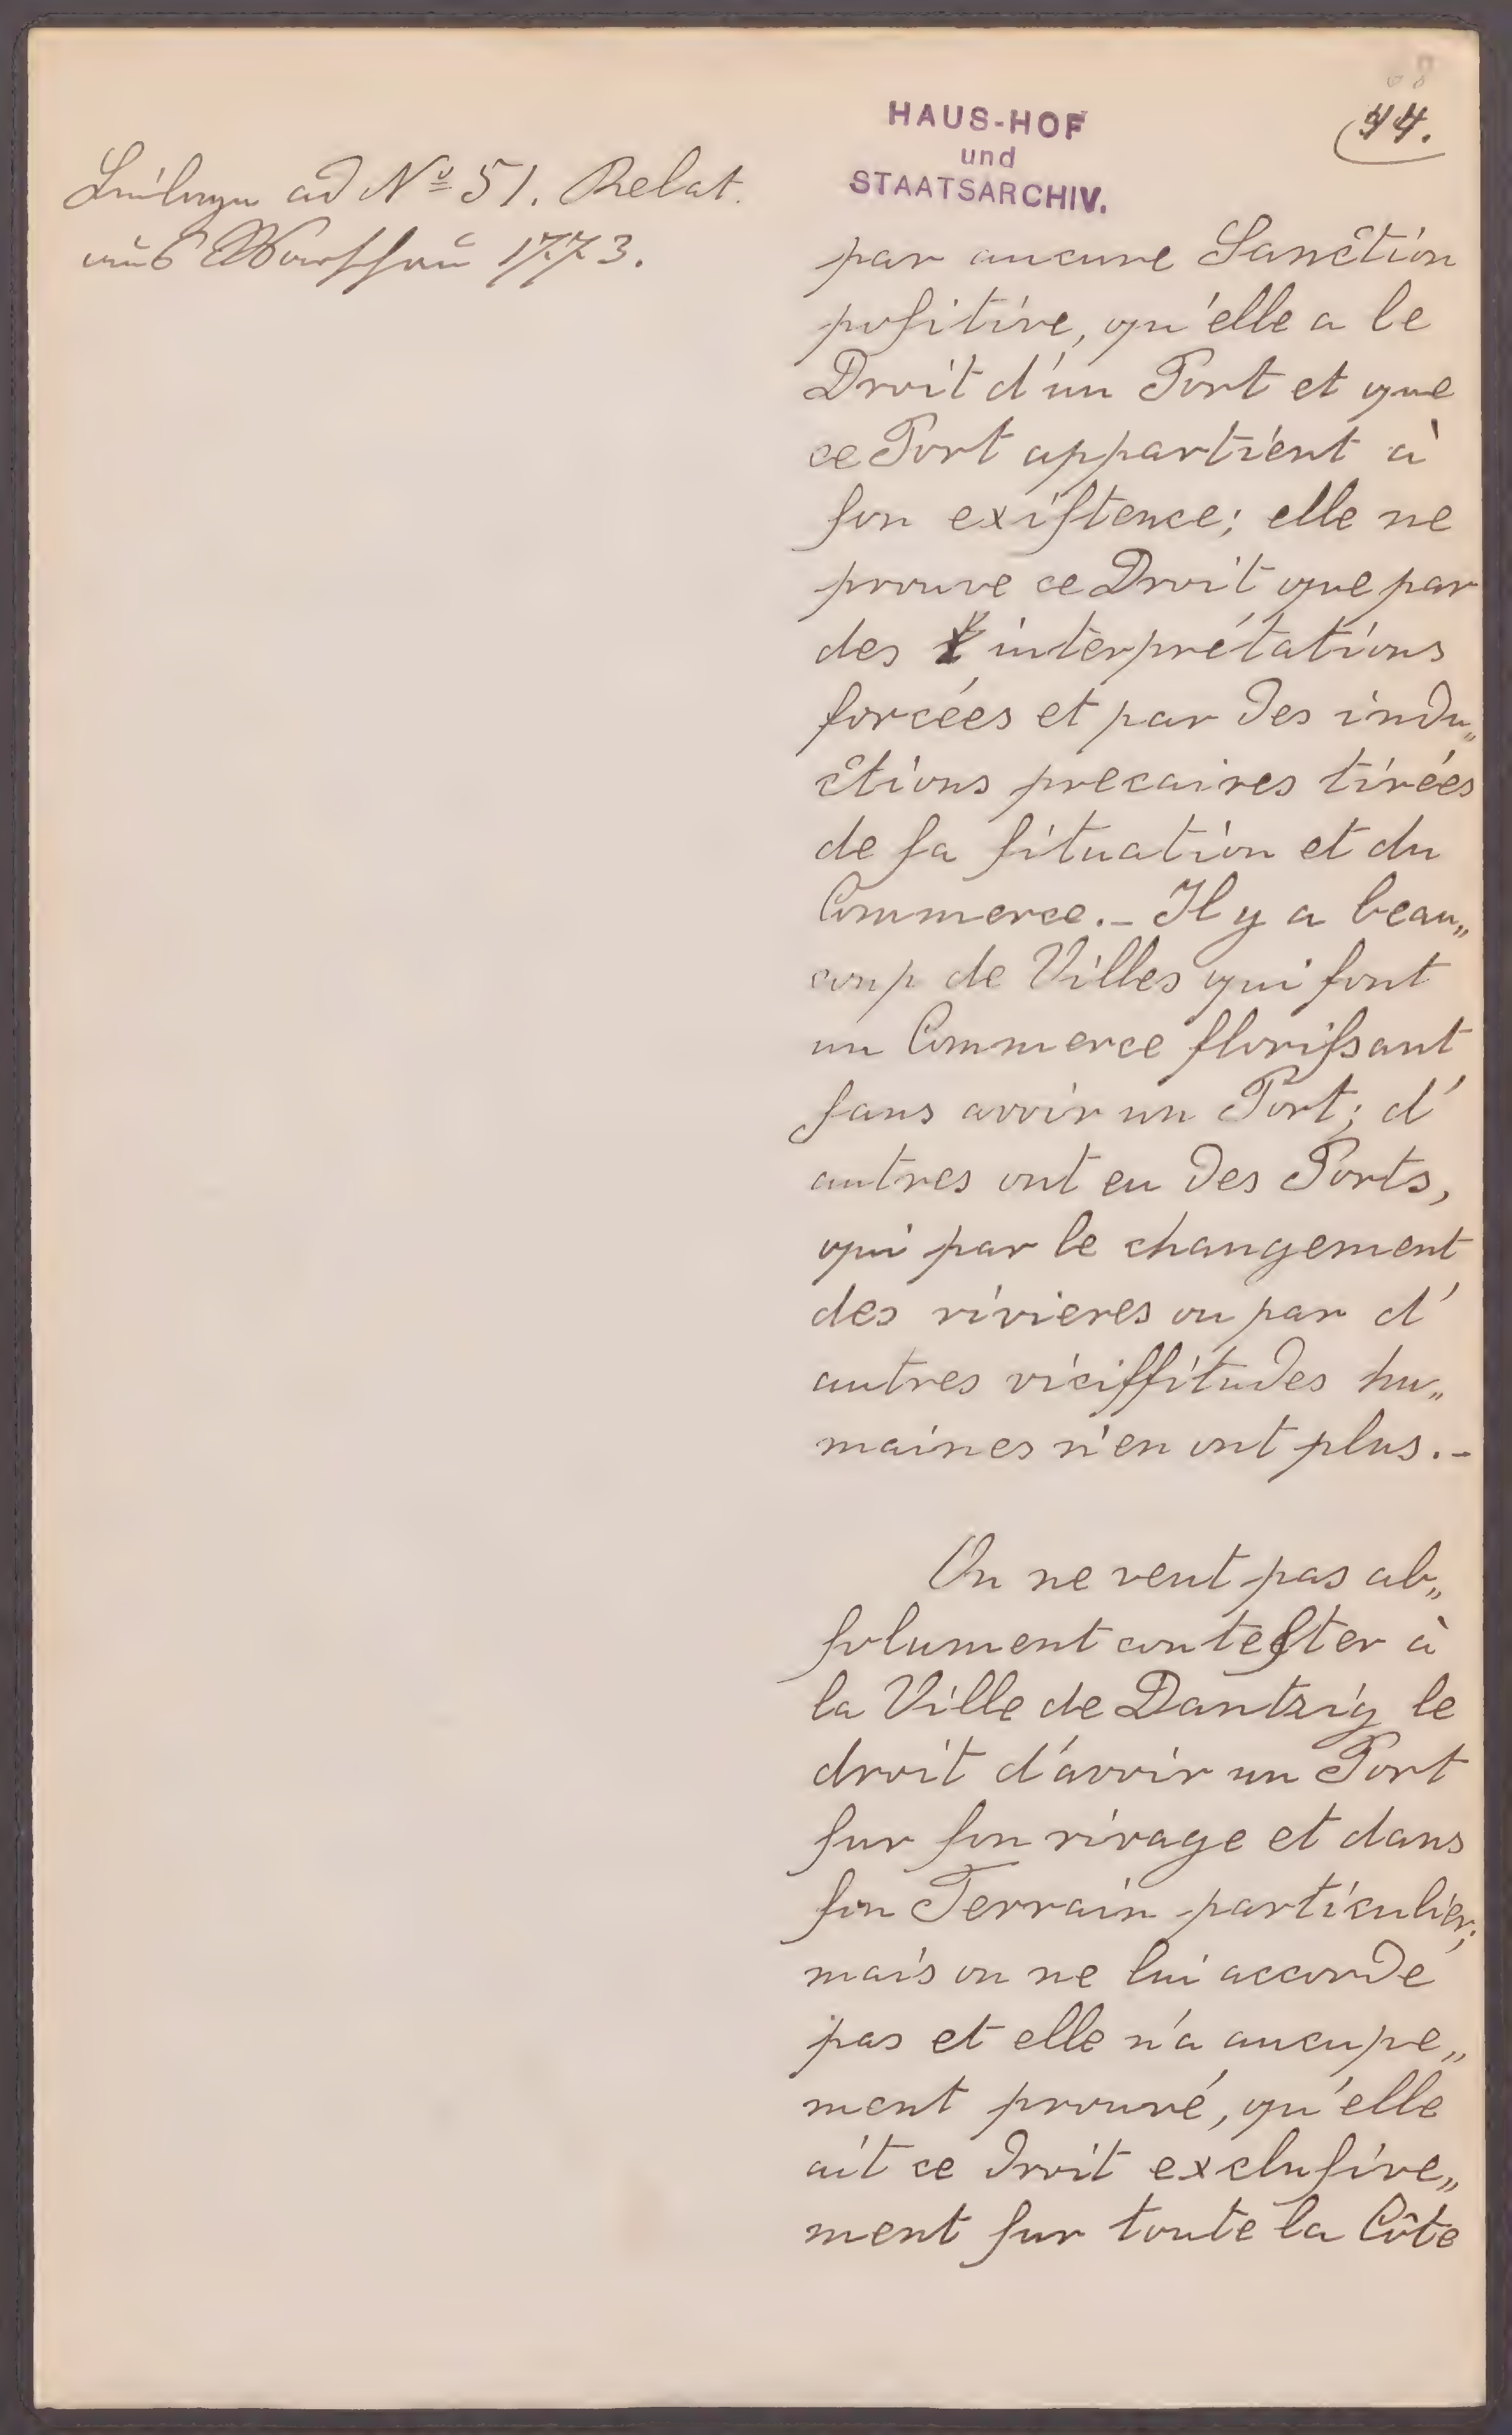 44.
HAUS-HOF
und
STAATSARCHIV.
Beilagen ad Nº 51. Relat.
aus Warschau 1773.
par aucune Sanction
positive, qu'elle a le
Droit d'un Port et que
ce Port appartient à
son existence; elle ne
prouve ce Droit que par
des interprétations
forcées et par des indu„
ctions precaires tirées
de sa situation et du
Commerce.– Il y a beau„
coup de Villes qui font
un Commerce florissant
sans avoir un Port; d'
autres ont eu des Ports,
qui par le changement
des rivieres ou par d'
autres vicissitudes hu„
maines n'en ont plus.–
On ne veut pas ab„
solument contester à
la Ville de Dantzig le
droit d'avoir un Port
sur son rivage et dans
son Terrain particulier;
mais on ne lui accorde
pas et elle n'a aucune„
ment prouvé, qu'elle
ait ce droit exclusive„
ment sur toute la Côte